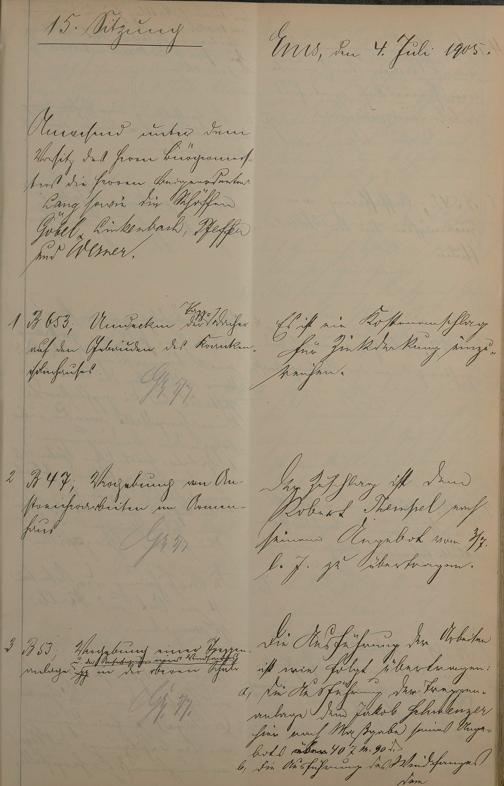 15. Sitzung
Ems, den 4. Juli 1905.
Anwesend unter dem
Vorsitz des Herrn Bürgermeis-
ters die Herren Beigeordneter
Lang sowie die Schöffen
Göbel, Linkenbach, Pfeffer
und Werner.
1 B 653, Umdecken der Papp-Dächer
auf den Gebäuden des Kranken-
hauses
Es ist ein Kostenanschlag
für Zinkdeckung einzu-
reichen.
2 B 47, Vergebung von An-
streicherarbeiten im Armen-
haus
Der Zuschlag ist dem
Robert Stempel nach
seinem Angebot vom 3/7.
l. J. zu übertragen.
3 B 53, Vergebung einer Treppen-
anlage in der oberen Schule
Die Ausführung der Arbeiten
ist wie folgt übertragen:
a, die Ausführung der Treppen-
anlage dem Jakob
hier nach Maßgabe seines Ange-
bots über 407 M. 90
b, die Ausführung des Windfanges
dem